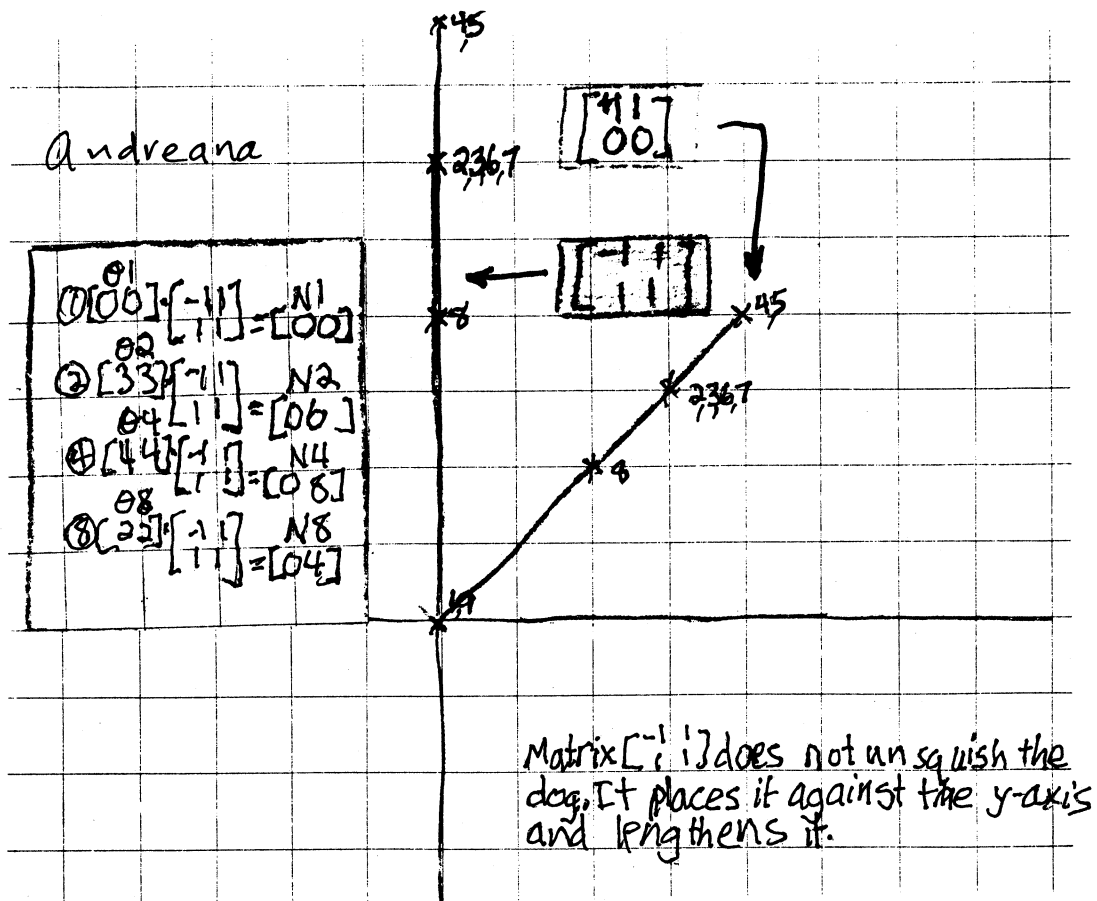 Andreana
4,5
2,3,6,7
8
[1 1
0 0]
[-1 1
1 1]
4,5
2,3,6,7
8
1,9
θ1
① [0 0]·[-1 1
1 1] = N1 [0 0]
θ2
② [3 3]·[-1 1
1 1] = N2 [0 6]
θ4
④ [4 4]·[-1 1
1 1] = N4 [0 8]
θ8
⑧ [2 2]·[-1 1
1 1] = N8 [0 4]
Matrix [-1 1
1 1] does not unsquish the
dog. It places it against the y-axis
and lengthens it.